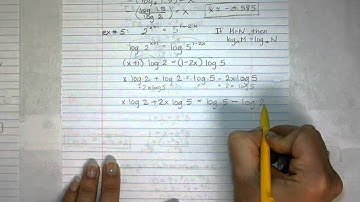 log 1.5 = x
log 2
x ≈ -0.585
ex #5: 2^(x+1) = 5^(1-2x) If M=N then
log 2^(x+1) = log 5^(1-2x) log_a M = log_a N
(x+1) log 2 = (1-2x) log 5
x log 2 + log 2 = log 5 - 2x log 5
+2x log 5 -log 2 +2x log 5
x log 2 + 2x log 5 = log 5 - log 2